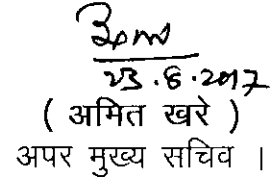 23.8.2017
( अमित खरे )
अपर मुख्य सचिव ।